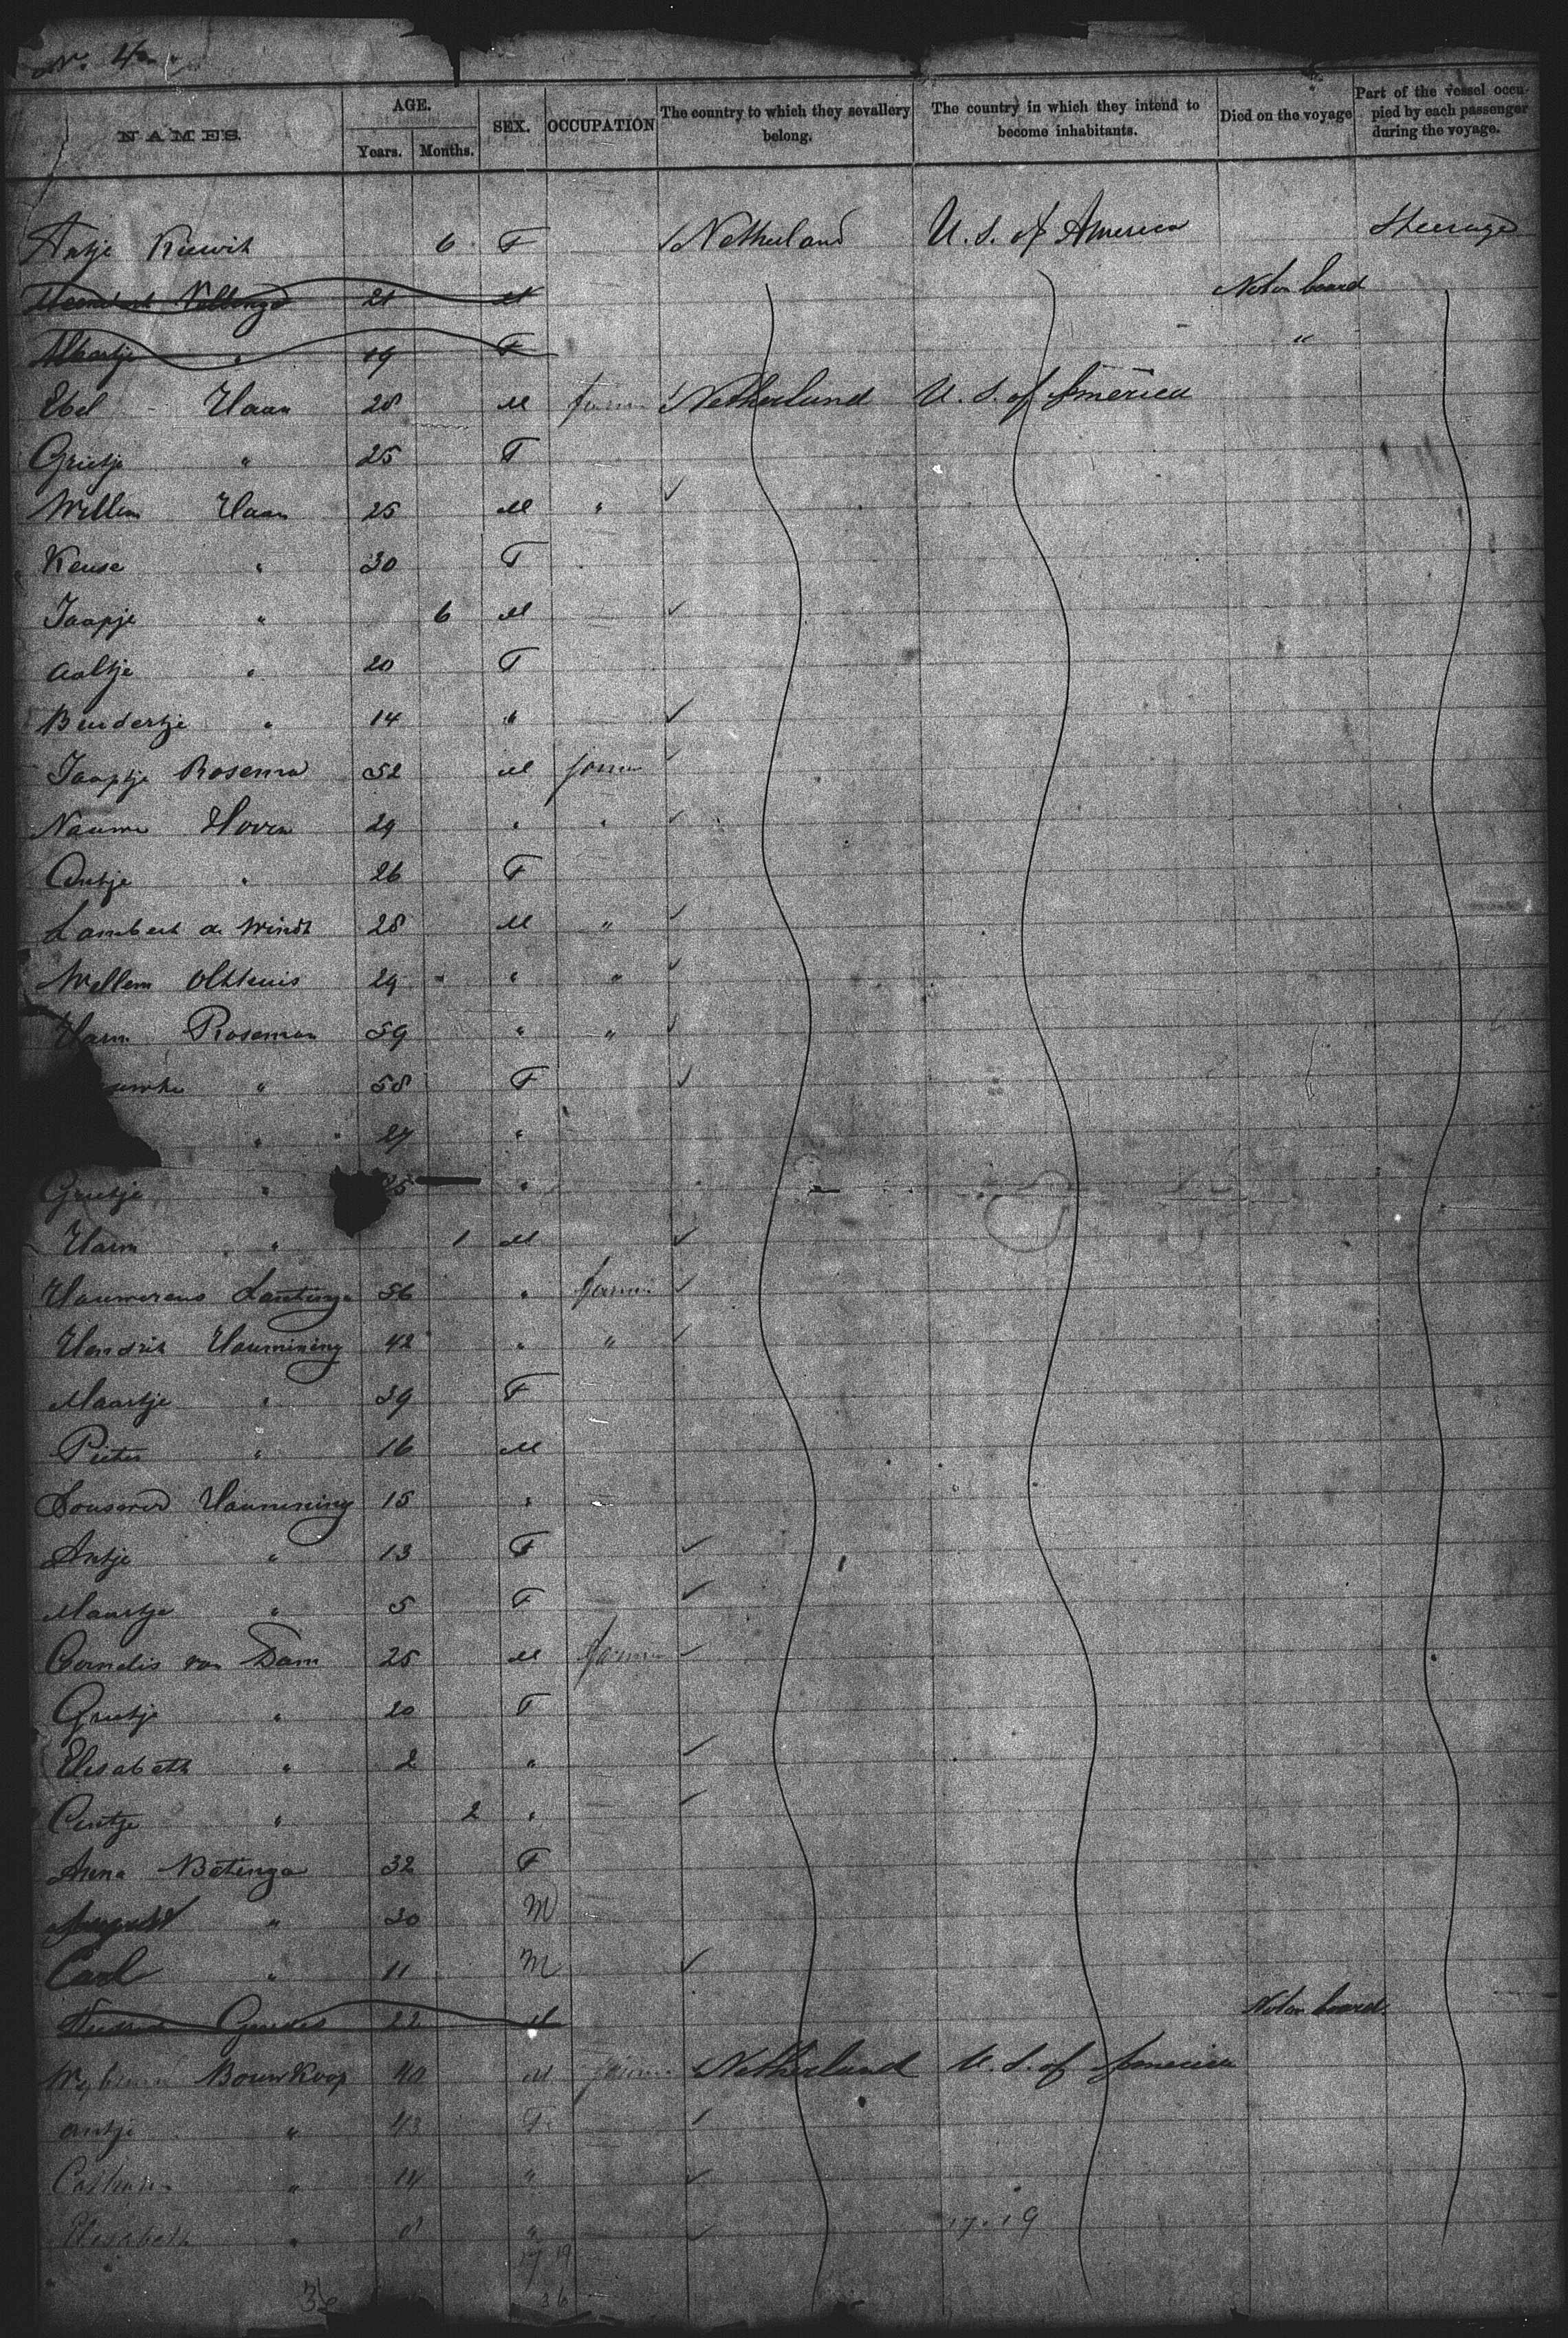 No. 4
NAMES. AGE. Years. Months. SEX. OCCUPATION The country to which they sevallery belong. The country in which they intend to become inhabitants. Died on the voyage Part of the vessel occupied by each passenger during the voyage.
Antje Kiewit 6 F Netherland U. S. of America Steerage
21 M Not on board
Albertje " 19 F "
Ebel Haan 28 M farm Netherland U. S. of America
Grietje " 25 F
Willem Haan 25 M "
Kense " 30 F
Jaapje " 6 M
Aaltje " 20 F
Bendertje " 14 "
Jaaptje Rosema 52 M farm
Nauwe Hoven 29 " "
Antje " 26 F
Lambert de Windt 28 M "
Willem Olthuis 29 " "
Harm Roseman 59 " "
" 58 F
" 27 "
Grietje " 25 "
Harm " 1 M
Lantinga 56 " farm
Hendrik Hammining 42 " "
Maartje " 39 F
Pieter " 16 M
Hammining 15 "
Antje " 13 F
Maartje " 5 F
Cornelis van Dam 25 M farm
Grietje " 20 F
Elisabeth " 2 "
Antje " 2 "
Anna Batinga 32 F
" 30 M
Carl " 11 M
22 M Not on board
Bouwkoop 40 M farm Netherland U. S. of America
Antje " 43 F
" 14 "
Elisabeth " 8 " 17.19
17 19
36